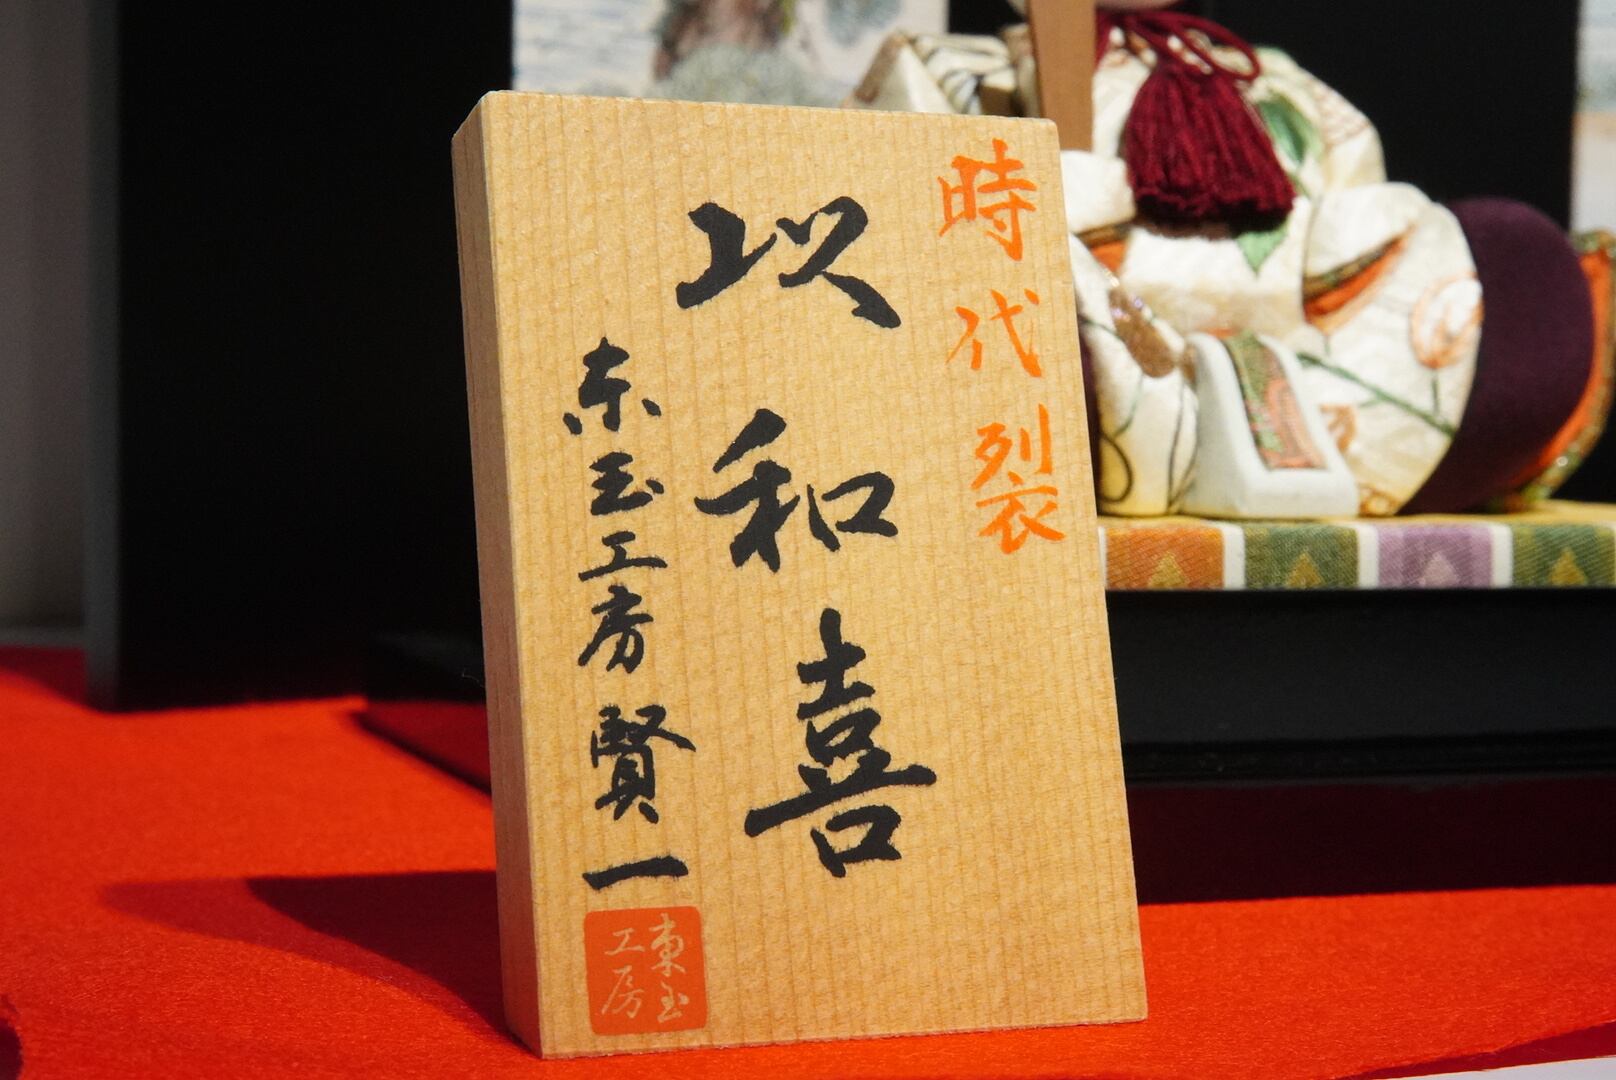 時代裂
以和喜
東玉工房 賢一
東玉
工房